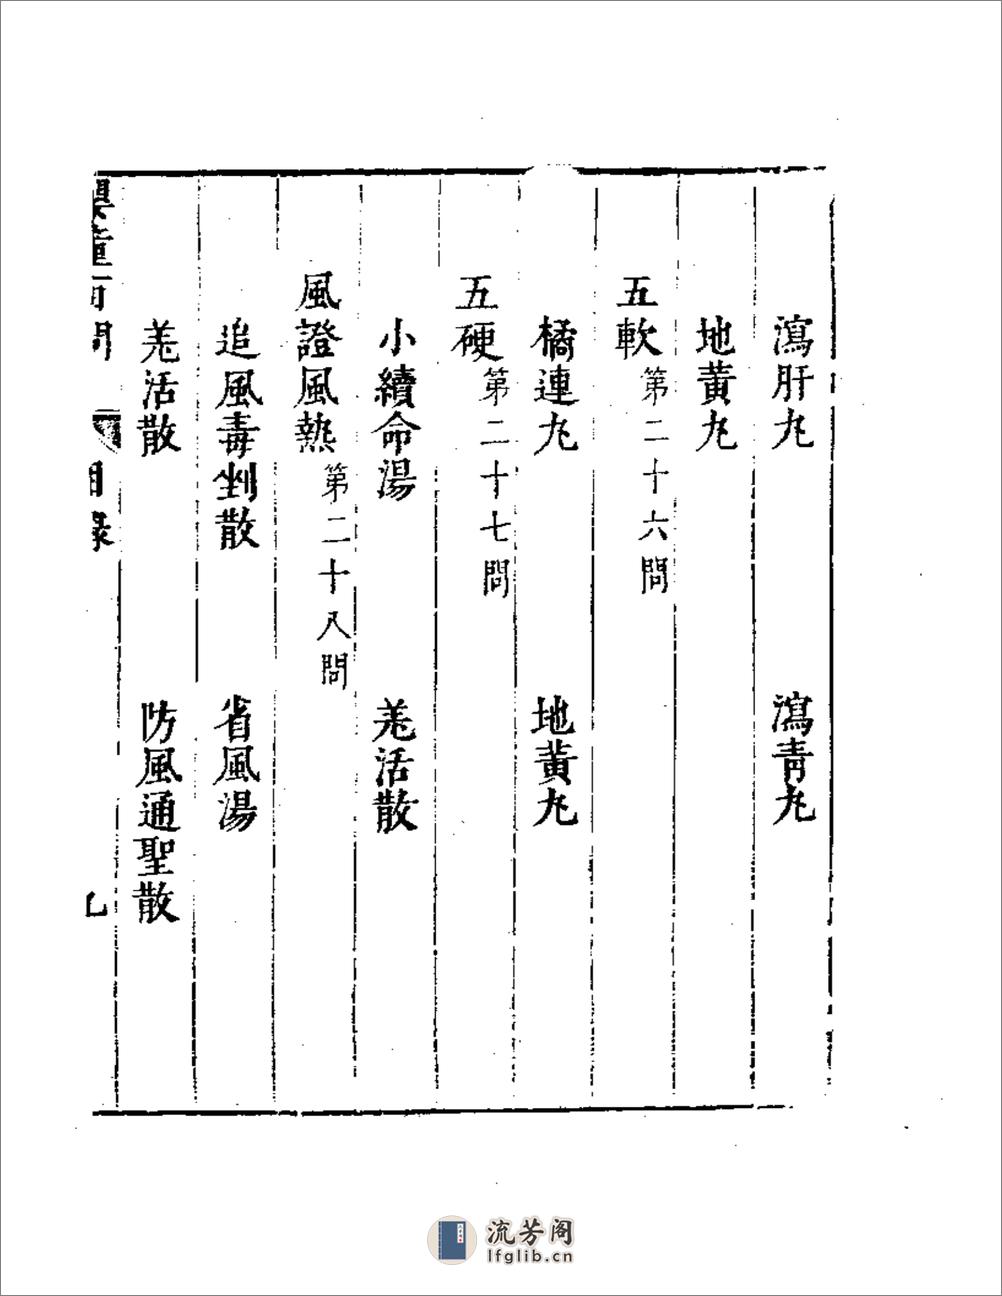 瀉肝丸 瀉青丸
地黃丸
五軟 第二十六問
橘連丸 地黃丸
五硬 第二十七問
小續命湯 羗活散
風證風熱 第二十八問
追風毒剉散 省風湯
羗活散 防風通聖散
嬰童百問 目錄 九
流芳阁
lfglib.cn